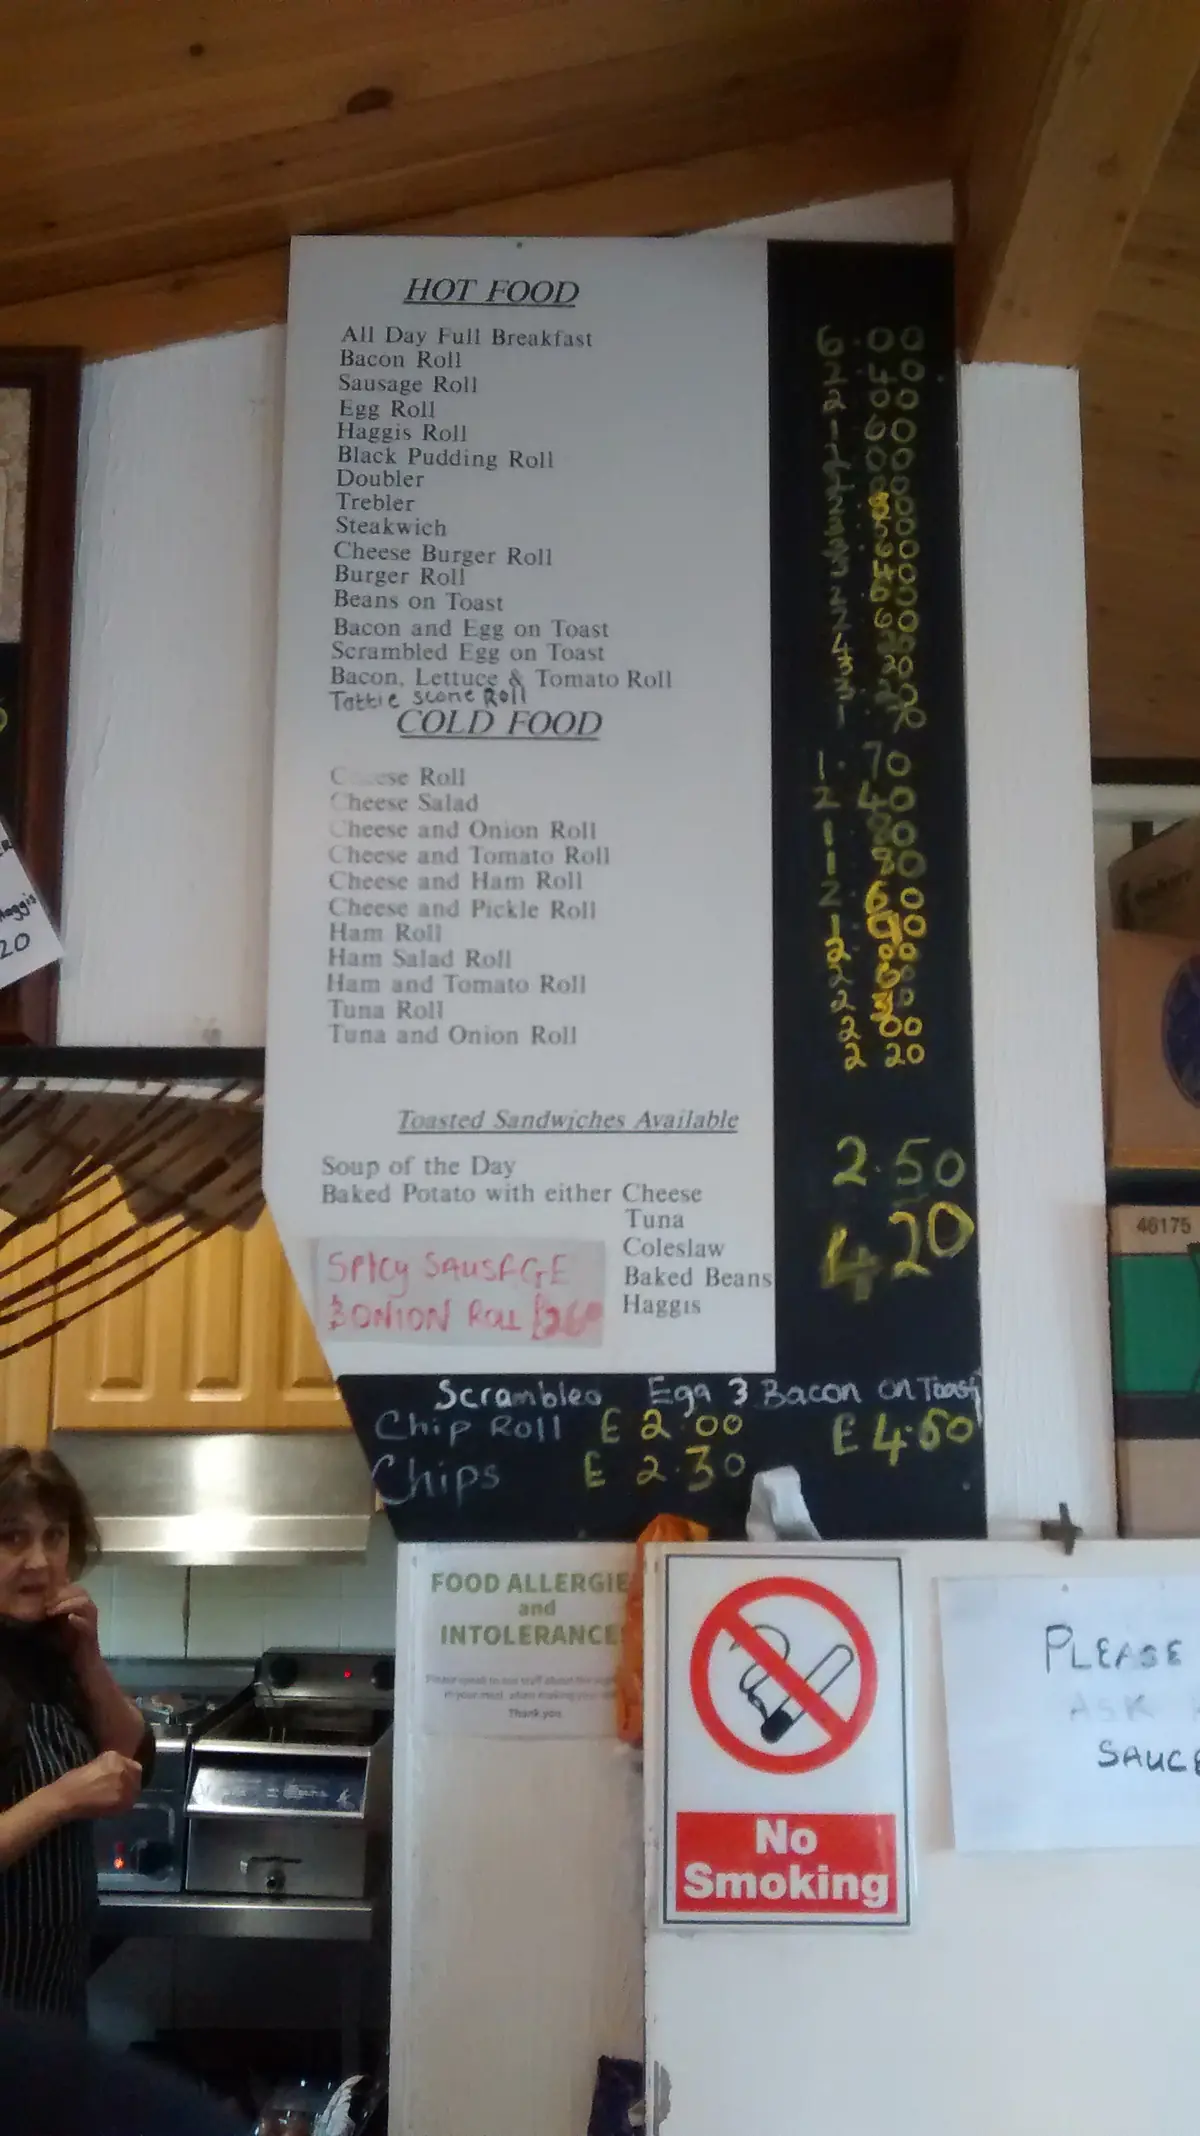 HOT FOOD
All Day Full Breakfast 6.00
Bacon Roll 2.40
Sausage Roll 2.00
Egg Roll 1.60
Haggis Roll
Black Pudding Roll
Doubler
Trebler
Steakwich
Cheese Burger Roll
Burger Roll
Beans on Toast
Bacon and Egg on Toast
Scrambled Egg on Toast
Bacon, Lettuce & Tomato Roll
Tattie Scone Roll 1.70
COLD FOOD
Cheese Roll 1.70
Cheese Salad 2.40
Cheese and Onion Roll 1.80
Cheese and Tomato Roll 1.80
Cheese and Ham Roll 2.60
Cheese and Pickle Roll 1.90
Ham Roll 2.00
Ham Salad Roll
Ham and Tomato Roll
Tuna Roll 2 00
Tuna and Onion Roll 2 20
Toasted Sandwiches Available
Soup of the Day 2.50
Baked Potato with either Cheese 4 20
Tuna
Coleslaw
Baked Beans
Haggis
SPICY SAUSAGE
ONION ROLL
Scrambled Egg 3 Bacon on Toast
Chip Roll £2.00 £4.50
Chips £2.30
FOOD ALLERGIE
and
INTOLERANCE
Thank you
No
Smoking
PLEASE
ASK
SAUCE
46175
Haggis
20